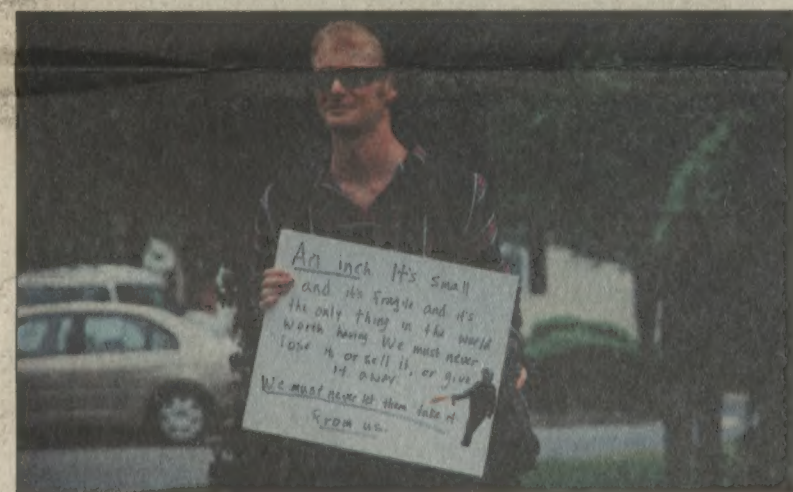 An inch It's small
and it's fragile and it's
the only thing in the world
worth having We must never
lose it or sell it, or give
it away
We must never let them take it
from us.